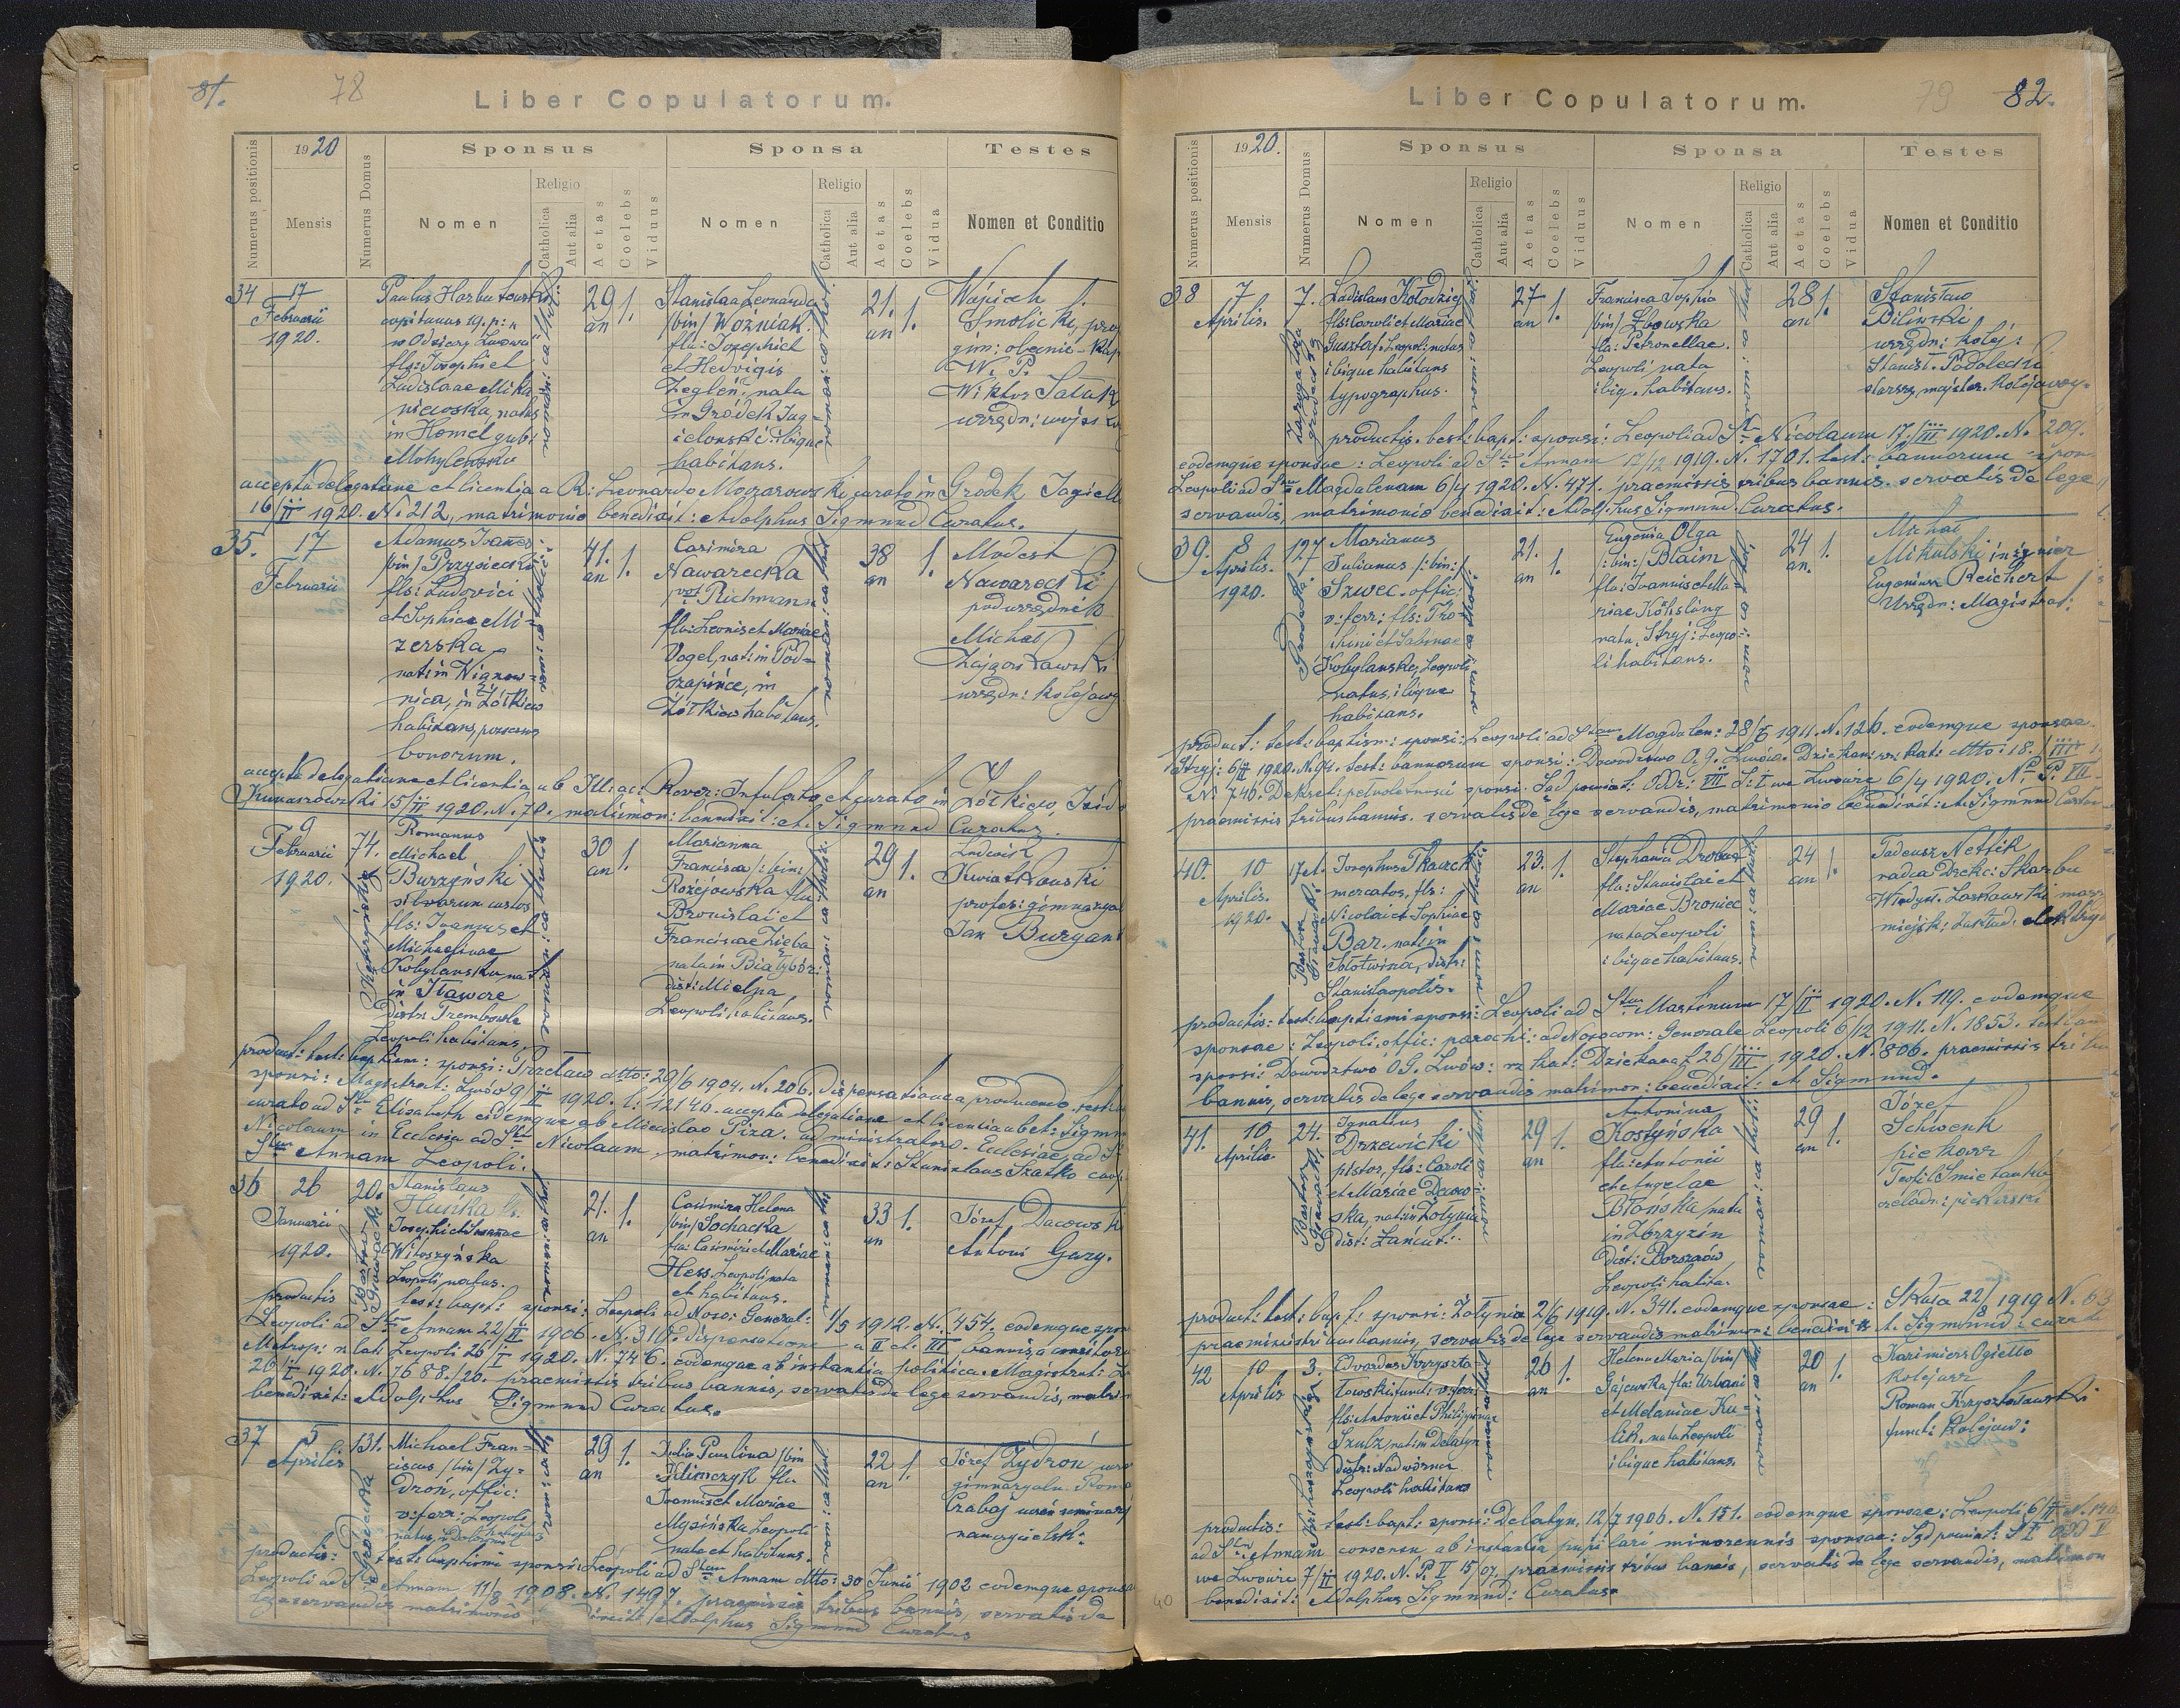 81.
78
Liber Copulatorum.
Numerus positionis
1920
Mensis
Numerus Domus
Sponsus
Nomen
Religio
Catholica
Aut alia
Aetas
Coelebs
Viduus
Sponsa
Nomen
Religio
Catholica
Aut alia
Aetas
Coelebs
Vidua
Testes
Nomen et Conditio
34
17
Februarii
1920.
Paulus
capitanus 19. p: p
w Odsiecz Lwowa
fls: Josephi et
Ladislaae Mika
niewska, natus
in Homel gub:
29 an
1.
Stanislaa Leonarda
/bin/ Woźniak.
fla: Josephi et
et Hedvigis
Zegleń, nata
in Gródek Jag
ielonski ibique
habitans.
21. an
1.
Smolicki, prof
gim: obecnie Kap
W. P.
Wiktor
urzędn: wojsk
accepta delegatione et licentia a R: Leonardo curato in Grodek Jagiell
16/II 1920. N: 212, matrimonio benedixit: Adolphus Sigmund Curatus.
35.
17
Februarii
Adamus Joannes
/bin/ Przysiecki
fls: Ludovici
et Sophiae Mi=
zerska,
nat: in
nica, in Żółkiew
habitans, possessor
bonorum.
41. an
1.
Casimira
Nawarecka
Richmann
fla: Leonis et Mariae
Vogel, nat: in Pod=
in
Żółkiew habitans.
38 an
1.
Modest
Nawarecki
podurzędnik
Michał
urzędn: kolejowy
accepta delegatione et licentia ab Ill: ac: Rever: Infulato et curato in Żółkiew,
15/II 1920. N. 70. matrimon: benedixit: A. Sigmund Curatus.
9
Februarii
1920.
74.
Romanus
Michael
Burzyński
silvarum custos
fls: Joannis et
Michaelinae
Kobylanska nat
in Iławcze
distr: Trembowla
Leopoli habitans.
30 an
1.
Marianna
Francisca /:bin:
Rozéjowska fla
Bronislai et
Franciscae Zięba
nata in
dist: Mielna,
Leopoli habitans.
29 an
1.
Ludwik
Kwiatkowski
profes: gimnazya
Jan Burgan
sponsi: Magistrat: Lwów 9/II 1920. l: 12140. accepta delegatione et licentia ab A: Sigmu
curato ad Stam Elisabeth eidemque ab Miecislao Piza. administratore. Ecclesiae ad S
Nicolaum in Ecclesia ad Stum Nicolaum, matrimon: benedixit: Stanislaus Szatko coop
Stam Annam Leopoli.
36
26
Januarii
1920.
20.
Stanislaus
Hunka fls.
Josephi et Annae
Witoszyńska
Leopoli natus.
21. an
1.
Casimira Helena
/bin/ Sochacka
fla: Casimiri et Mariae
Hess. Leopoli nata
et habitans.
33 an
1.
Józef Dacows
Antoni Gury.
productis test: bapt: sponsi: Leopoli ad Noso: General: 1/5 1912. N. 454. eodemque spon
Leopoli ad Stam Annam 22/II 1906. N. 310. dispensatione a II et III bannis a consistor
Metrop: r. lat: Leopoli 26/I 1920. N. 746. eodemque ab instantia politica Magistrat: L
26/I 1920. N. 7688./20. praemissis tribus bannis, servatis de lege servandis, matrim
benedixit: Adolphus Sigmund Curatus.
37
5
Aprilis
131.
Gródecka
Michael Fran=
ciscus /bin/ Zy=
droń, offic:
v: ferr: Leopoli
29 an
1.
Julia Paulina /bin
Klimczyk fla
Joannis et Mariae
Mysińska Leopoli
nata et habitans.
22 an
1.
Józef Zydroń
gimnazyaln. Roma
Czabaj uczeń seminary
nauczycielsk:
productis: test: baptismi sponsi: Leopoli ad Stam Annam dtto: 30 Junii 1902 eodemque sponsa
Leopoli ad Stam Annam 11/8 1908. N. 1497. praemissis tribus bannis, servatis de
lege servandis matrimonio benedixit: Adolphus Sigmund Curatus
79
82.
Liber Copulatorum.
Numerus positionis
1920.
Mensis
Numerus Domus
Sponsus
Nomen
Religio
Catholica
Aut alia
Aetas
Coelebs
Viduus
Sponsa
Nomen
Religio
Catholica
Aut alia
Aetas
Coelebs
Vidua
Testes
Nomen et Conditio
38
7
Aprilis.
7.
Ladislaus Kołodziej
fls: Caroli et Mariae
Gusztaf: Leopoli natus
ibique habitans
typographus.
27 an
1.
Francisca Sophia
/bin/ Zbowska
fla: Petronellae.
Leopoli nata
ibiq. habitans.
28 an
1.
Stanisław
Biliński
urzędn: kolej:
Stanisł. Podolecki
starszy majster. Kolejowy.
productis. test: bapt: sponsi: Leopoli ad St Nicolaum 17/III 1920. N. 209.
eodemque sponsae: Leopoli ad Stam Annam 17/12 1919. N. 1701. test: bannorum spon
Leopoli ad Stam Magdalenam 6/4 1920. N. 471. praemissis tribus bannis. servatis de lege
servandis, matrimonio benedixit: Adolphus Sigmund Curatus.
39.
8
Aprilis.
1920.
127
Gródecka
Marianus
Julianus /:bin:/
Szwec. offic:
v: ferr: fls: Tro
et Sabinae
Kobylanska, Leopoli
natus, ibique
habitans.
21. an
1.
Eugenia Olga
/:bin:/ Blaim
fla: Joannis et Ma
riae Köhsling
nata, Stryj: Leopo=
li habitans.
24 an.
1.
Michał
Mikulski inżynier
Eugeniusz Reichert
Urzędn: Magistrat:
product: test: baptism: sponsi: Leopoli ad Stam Magdalen: 28/5 1911. N. 126. eodemque sponsae.
Stryj: 6/II 1920. N. 94. test: bannorum sponsi: Dowództwo O. G. Lwów. Dziekan: rz: kat: dtto: 18./III
N. 746. Dekret: pełnoletności sponsi: Sąd powiat: Odz: VIII S: I we Lwowie 6/4 1920. N. P. VII
praemissis tribus bannis. servatis de lege servandis, matrimonio benedixit: A. Sigmund
40.
10
Aprilis.
1920.
Josephus Tkaczek
mercator, fls:
Nicolai et Sophiae
Bar. nat: in
Sołotwina, distr:
Stanislaopolis.
23. an
1.
Stephania
fla: Stanislai et
Mariae Broniec
nata Leopoli
ibique habitans.
24 an
1.
Tadeusz Nettik
radca Dyrekc: Skarbu
miejsk: Zakład: elektry
productis: test: baptismi sponsi: Leopoli ad Stum Martinum 17/II 1920. N. 119. eodemque
sponsae: Leopoli, offic: parochi: ad Nosocom: Generale Leopoli 6/12 1911. N. 1853. test: ban
sponsi: Dowództwo O. G. Lwów: rz kat: Dziekanat 26/III 1920. N. 806. praemissis tribu
bannis, servatis de lege servandis matrimon: benedixit: A. Sigmund.
41.
10
Aprilis.
24.
Ignatius
Drzewicki
pistor, fls: Caroli
et Mariae Decow
ska, nat: in Żołynia
dist: Łańcut:
29 an
1.
Antonina
Kostyńska
fla: Antonii
et Angelae
Błońska, nata
in Zbrzyzin
dist: Borszaów
Leopoli habita.
29 an
1.
Józef
Schwenk
piekarz
Teofil
czeladn: piekarski
product: test: bapt: sponsi: Żołynia 2/6 1919. N. 341. eodemque sponsae: Skała 22/8 1919 N. 63
praemissis tribus bannis, servatis de lege servandis matrimon: benedixit A. Sigmund: cura
42
10
Aprilis
3.
Edvardus Krzyszta=
łowski funct: v: ferr:
fls: Antonii et Philippinae
Szulz, nat: in Delatyn
distr: Nadwórna
Leopoli habitans
26 an
1.
Helena Maria /bin/
Gajewska fla: Urbani
et Melaniae Ku=
lik. nata Leopoli
ibique habitans.
20 an
1.
Kazimierz Ogiełło
Kolejarz
Roman Krzyształowski
funct: Kolejow:
productis: test: bapt: sponsi: Delatyn. 12/7 1906. N. 151. eodemque sponsae: Leopoli 6/II N. 146
ad Stam Annam consensu ab instantia pupilari minorennis sponsae: Sąd powiat: S I Odd V
we Lwowie 7/II 1920. N. P. V 15/07. praemissis tribus bannis, servatis de lege servandis, matrimon
benedixit: Adolphus Sigmund: Curatus.
40